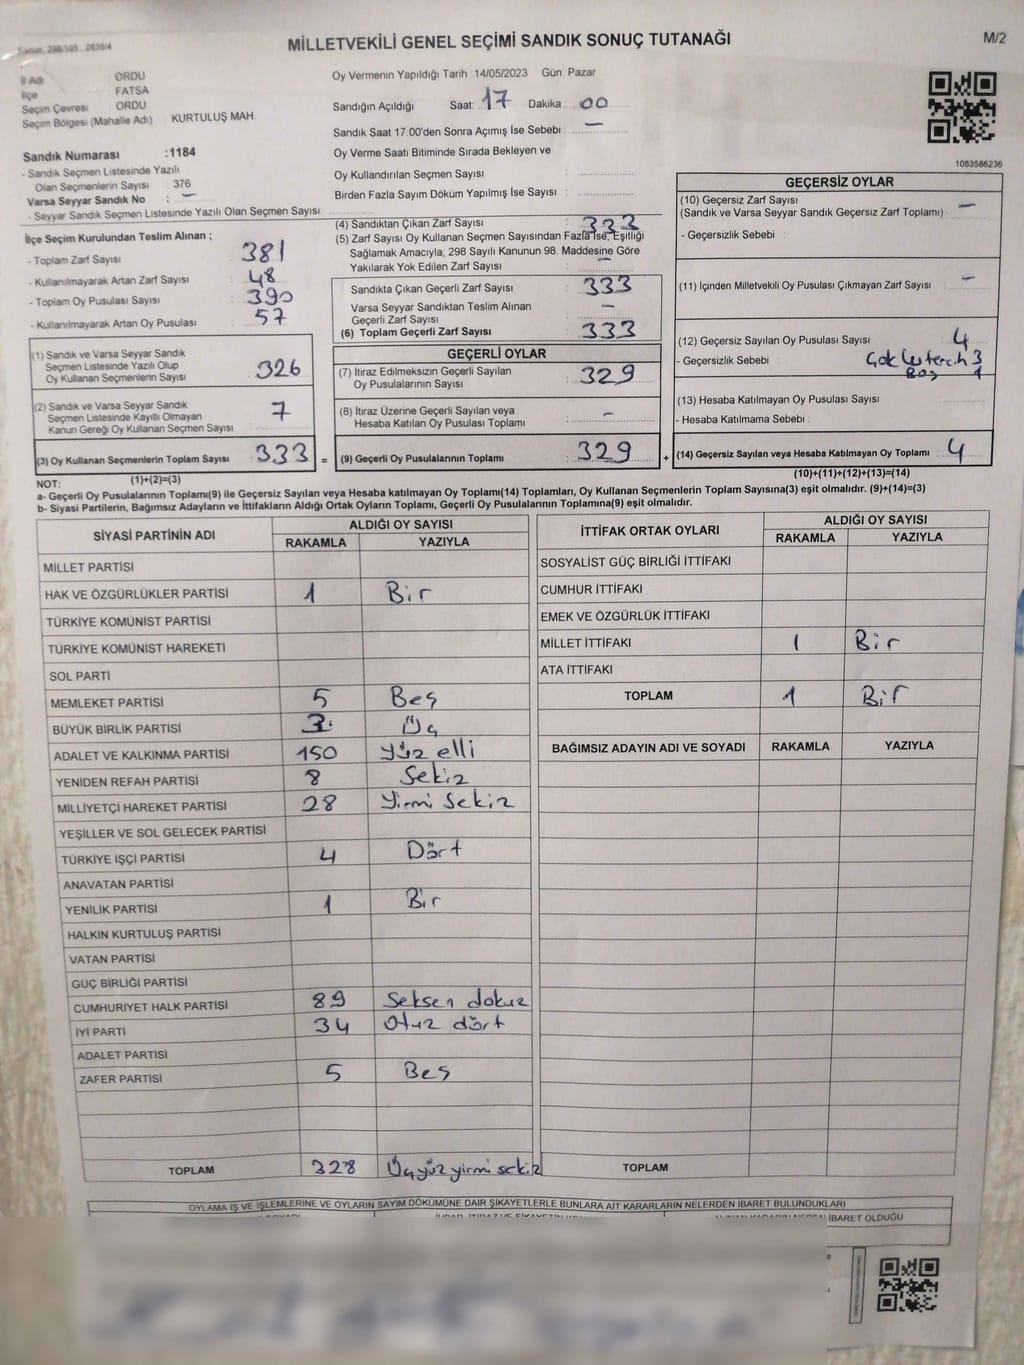 Kanun, 298/105 , 2839/4
MİLLETVEKİLİ GENEL SEÇİMİ SANDIK SONUÇ TUTANAĞI
M/2
İl Adı ORDU
İlçe FATSA
Seçim Çevresi ORDU
Seçim Bölgesi (Mahalle Adı) KURTULUŞ MAH
Sandık Numarası :1184
- Sandık Seçmen Listesinde Yazılı
Olan Seçmenlerin Sayısı : 376
Varsa Seyyar Sandık No : —
- Seyyar Sandık Seçmen Listesinde Yazılı Olan Seçmen Sayısı :
Oy Vermenin Yapıldığı Tarih :14/05/2023 Gün: Pazar
Sandığın Açıldığı Saat: 17 Dakika : 00
Sandık Saat 17.00'den Sonra Açımış İse Sebebi : —
Oy Verme Saati Bitiminde Sırada Bekleyen ve
Oy Kullandırılan Seçmen Sayısı :
Birden Fazla Sayım Döküm Yapılmış İse Sayısı :
1083586236
İlçe Seçim Kurulundan Teslim Alınan ;
- Toplam Zarf Sayısı : 381
- Kullanılmayarak Artan Zarf Sayısı : 48
- Toplam Oy Pusulası Sayısı : 390
- Kullanılmayarak Artan Oy Pusulası : 57
(1) Sandık ve Varsa Seyyar Sandık
Seçmen Listesinde Yazılı Olup
Oy Kullanan Seçmenlerin Sayısı : 326
(2) Sandık ve Varsa Seyyar Sandık
Seçmen Listesinde Kayıtlı Olmayan
Kanun Gereği Oy Kullanan Seçmen Sayısı : 7
(3) Oy Kullanan Seçmenlerin Toplam Sayısı : 333 =
(1)+(2)=(3)
(4) Sandıktan Çıkan Zarf Sayısı : 333
(5) Zarf Sayısı Oy Kullanan Seçmen Sayısından Fazla İse, Eşitliği
Sağlamak Amacıyla, 298 Sayılı Kanunun 98. Maddesine Göre
Yakılarak Yok Edilen Zarf Sayısı : —
Sandıkta Çıkan Geçerli Zarf Sayısı : 333
Varsa Seyyar Sandıktan Teslim Alınan
Geçerli Zarf Sayısı : —
(6) Toplam Geçerli Zarf Sayısı : 333
GEÇERLİ OYLAR
(7) İtiraz Edilmeksizin Geçerli Sayılan
Oy Pusulalarının Sayısı : 329
(8) İtiraz Üzerine Geçerli Sayılan veya
Hesaba Katılan Oy Pusulası Toplamı : —
(9) Geçerli Oy Pusulalarının Toplamı : 329 +
GEÇERSİZ OYLAR
(10) Geçersiz Zarf Sayısı
(Sandık ve Varsa Seyyar Sandık Geçersiz Zarf Toplamı) : —
- Geçersizlik Sebebi :
(11) İçinden Milletvekili Oy Pusulası Çıkmayan Zarf Sayısı : —
(12) Geçersiz Sayılan Oy Pusulası Sayısı : 4
- Geçersizlik Sebebi : Çok tercih 3
Boş 1
(13) Hesaba Katılmayan Oy Pusulası Sayısı :
- Hesaba Katılmama Sebebi :
(14) Geçersiz Sayılan veya Hesaba Katılmayan Oy Toplamı : 4
(10)+(11)+(12)+(13)=(14)
NOT:
a- Geçerli Oy Pusulalarının Toplamı(9) ile Geçersiz Sayılan veya Hesaba katılmayan Oy Toplamı(14) Toplamları, Oy Kullanan Seçmenlerin Toplam Sayısına(3) eşit olmalıdır. (9)+(14)=(3)
b- Siyasi Partilerin, Bağımsız Adayların ve İttifakların Aldığı Ortak Oyların Toplamı, Geçerli Oy Pusulalarının Toplamına(9) eşit olmalıdır.
SİYASİ PARTİNİN ADI ALDIĞI OY SAYISI
RAKAMLA YAZIYLA
MİLLET PARTİSİ
HAK VE ÖZGÜRLÜKLER PARTİSİ 1 Bir
TÜRKİYE KOMÜNİST PARTİSİ
TÜRKİYE KOMÜNİST HAREKETİ
SOL PARTİ
MEMLEKET PARTİSİ 5 Beş
BÜYÜK BİRLİK PARTİSİ 3 Üç
ADALET VE KALKINMA PARTİSİ 150 Yüz elli
YENİDEN REFAH PARTİSİ 8 Sekiz
MİLLİYETÇİ HAREKET PARTİSİ 28 Yirmi Sekiz
YEŞİLLER VE SOL GELECEK PARTİSİ
TÜRKİYE İŞÇİ PARTİSİ 4 Dört
ANAVATAN PARTİSİ
YENİLİK PARTİSİ 1 Bir
HALKIN KURTULUŞ PARTİSİ
VATAN PARTİSİ
GÜÇ BİRLİĞİ PARTİSİ
CUMHURİYET HALK PARTİSİ 89 Seksen dokuz
İYİ PARTİ 34 Otuz dört
ADALET PARTİSİ
ZAFER PARTİSİ 5 Beş
TOPLAM 328 Üçyüz yirmi sekiz
İTTİFAK ORTAK OYLARI ALDIĞI OY SAYISI
RAKAMLA YAZIYLA
SOSYALİST GÜÇ BİRLİĞİ İTTİFAKI
CUMHUR İTTİFAKI
EMEK VE ÖZGÜRLÜK İTTİFAKI
MİLLET İTTİFAKI 1 Bir
ATA İTTİFAKI
TOPLAM 1 Bir
BAĞIMSIZ ADAYIN ADI VE SOYADI RAKAMLA YAZIYLA
TOPLAM
OYLAMA İŞ VE İŞLEMLERİNE VE OYLARIN SAYIM DÖKÜMÜNE DAİR ŞİKAYETLERLE BUNLARA AİT KARARLARIN NELERDEN İBARET BULUNDUKLARI
İBARET OLDUĞU